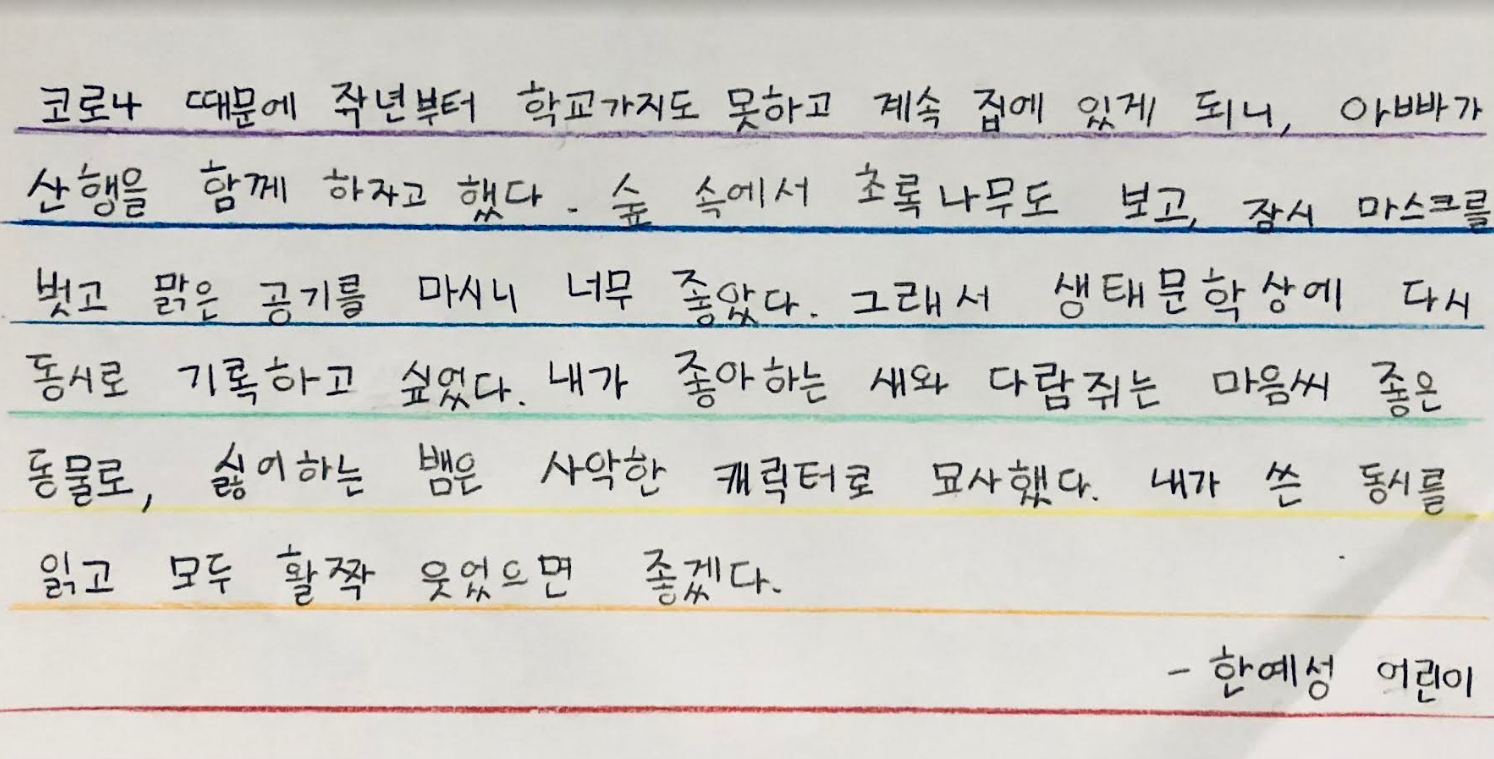 코로나 때문에 작년부터 학교가지도 못하고 계속 집에 있게 되니, 아빠가
산행을 함께 하자고 했다. 숲 속에서 초록나무도 보고, 잠시 마스크를
벗고 맑은 공기를 마시니 너무 좋았다. 그래서 생태문학상에 다시
동시로 기록하고 싶었다. 내가 좋아하는 새와 다람쥐는 마음씨 좋은
동물로, 싫어하는 뱀은 사악한 캐릭터로 묘사했다. 내가 쓴 동시를
읽고 모두 활짝 웃었으면 좋겠다.
- 한예성 어린이